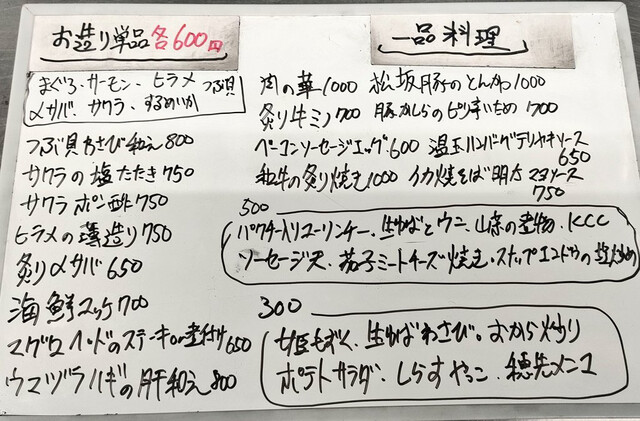 お造り単品各600円
まぐろ、サーモン、ヒラメ つぶ貝
〆サバ、サワラ、するめいか
つぶ貝わさび和え 800
サワラの塩たたき 750
サワラポン酢 750
ヒラメの薄造り 750
炙り〆サバ 650
海鮮ユッケ 700
マグロヘッドのステーキor煮付け 650
ウマヅラハギの肝和え 800
一品料理
肉の華 1000 松坂豚のとんかつ 1000
炙り牛ミノ 700 豚かしらのピリ辛いため 700
ベーコンソーセージエッグ 600 温玉ハンバーグテリヤキソース
650
和牛の炙り焼き 1000 イカ焼そば明太マヨソース
750
500
パクチー入りユーリンチー、生ゆばとウニ、山菜の煮物、KCC
ソーセージ天、茄子ミートチーズ焼き・スナップエンドウの塩炒め
300
姫もずく、生ゆばわさび。おから炒り
ポテトサラダ、しらすやっこ、穂先メンマ